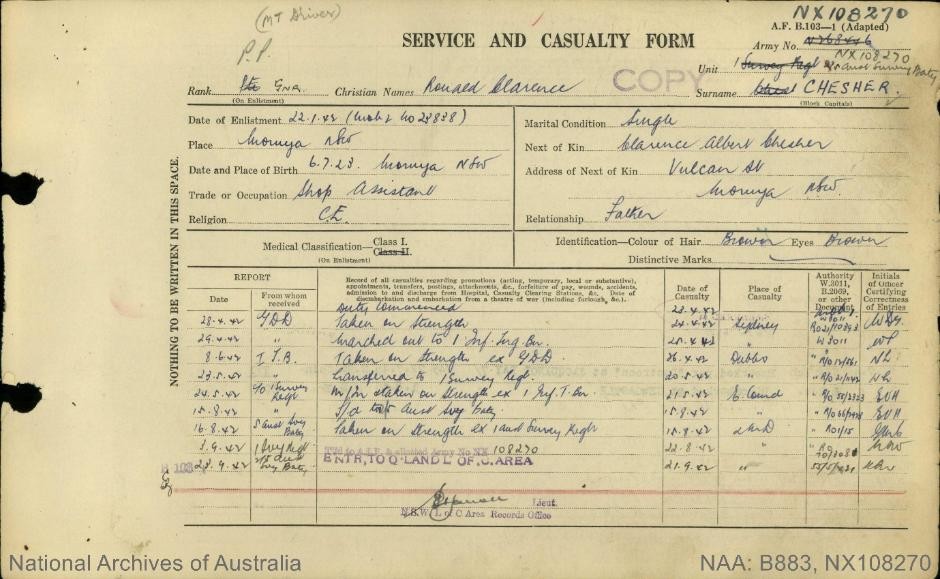 (MT Driver)
P.P.
NX108270
A.F. B.103—1 (Adapted)
SERVICE AND CASUALTY FORM
Army No. N268446
NX108270
COPY
Unit 1 Survey Regt 5 Aust Survey Baty
Rank Pte GNR.
(On Enlistment)
Christian Names Ronald Clarence
Surname CHESHER
(Block Capitals)
Date of Enlistment 22.1.42
Place Moruya NSW
Date and Place of Birth 6.7.23 Moruya NSW
Trade or Occupation Shop Assistant
Religion C.E.
Marital Condition Single
Next of Kin Clarence Albert Chesher
Address of Next of Kin Vulcan St
Moruya NSW.
Relationship Father
Medical Classification—Class I.
Class II.
(On Enlistment)
Identification—Colour of Hair Brown Eyes Brown
Distinctive Marks
NOTHING TO BE WRITTEN IN THIS SPACE.
REPORT
Date
From whom received
Record of all casualties regarding promotions (acting, temporary, local or substantive), appointments, transfers, postings, attachments, &c., forfeiture of pay, wounds, accidents, admission to and discharge from Hospital, Casualty Clearing Stations, &c. Date of disembarkation and embarkation from a theatre of war (including furlough, &c.).
Date of Casualty
Place of Casualty
Authority W.3011, B.2069, or other Document
Initials of Officer Certifying Correctness of Entries
Duty Commenced 23.4.42
28.4.42 GDD Taken on Strength 24.4.42 Sydney
29.4.42 " Marched out to 1 Inf. Trg. Bn. 25.4.42 " W3011
8.6.42 I.T.B. Taken on Strength ex GDD. 26.4.42 Dubbo
23.5.42 " Transferred to 1 Survey Regt. 20.5.42 "
24.5.42 1 Survey Regt M/In & taken on strength ex 1 Inf. T. Bn. 21.5.42 E. Comd EVH
15.8.42 " T/d to 5 Aust Svy Baty. 15.8.42 " EVH
16.8.42 5 Aust Svy Baty Taken on Strength ex 1 Aust Survey Regt 15.8.42
3.9.42 1 Svey Regt 108270 22.8.42 "
B 103
23.9.42 5 Aust Svy Baty ENTR, TO Q-LAND L OF C. AREA 21.9.42 "
Lieut.
N.S.W. L of C Area Records Office
National Archives of Australia
NAA: B883, NX108270